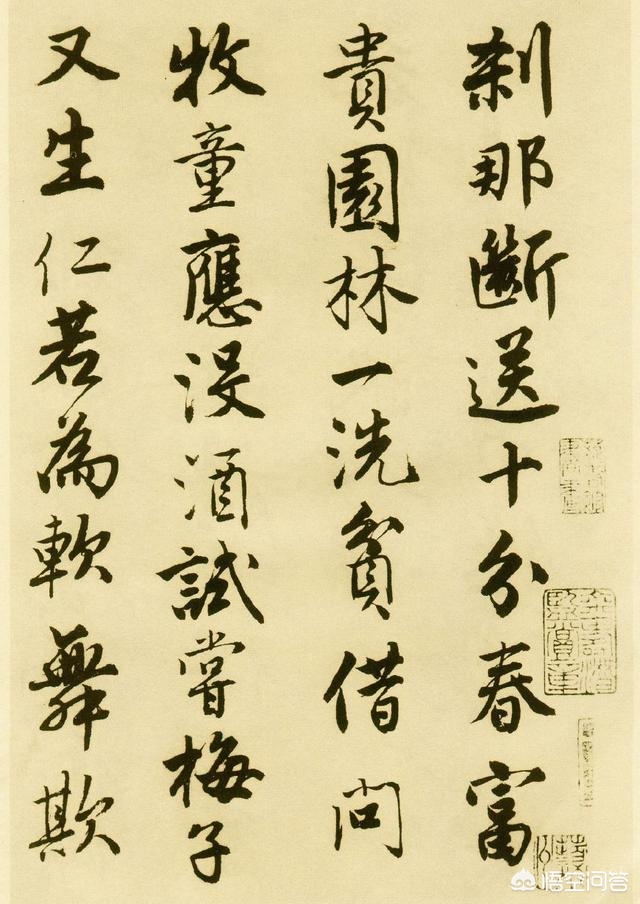 刹那斷送十分春富
貴園林一洗貧借問
牧童應没酒試嘗梅子
又生仁若為軟舞欺
悟空问答